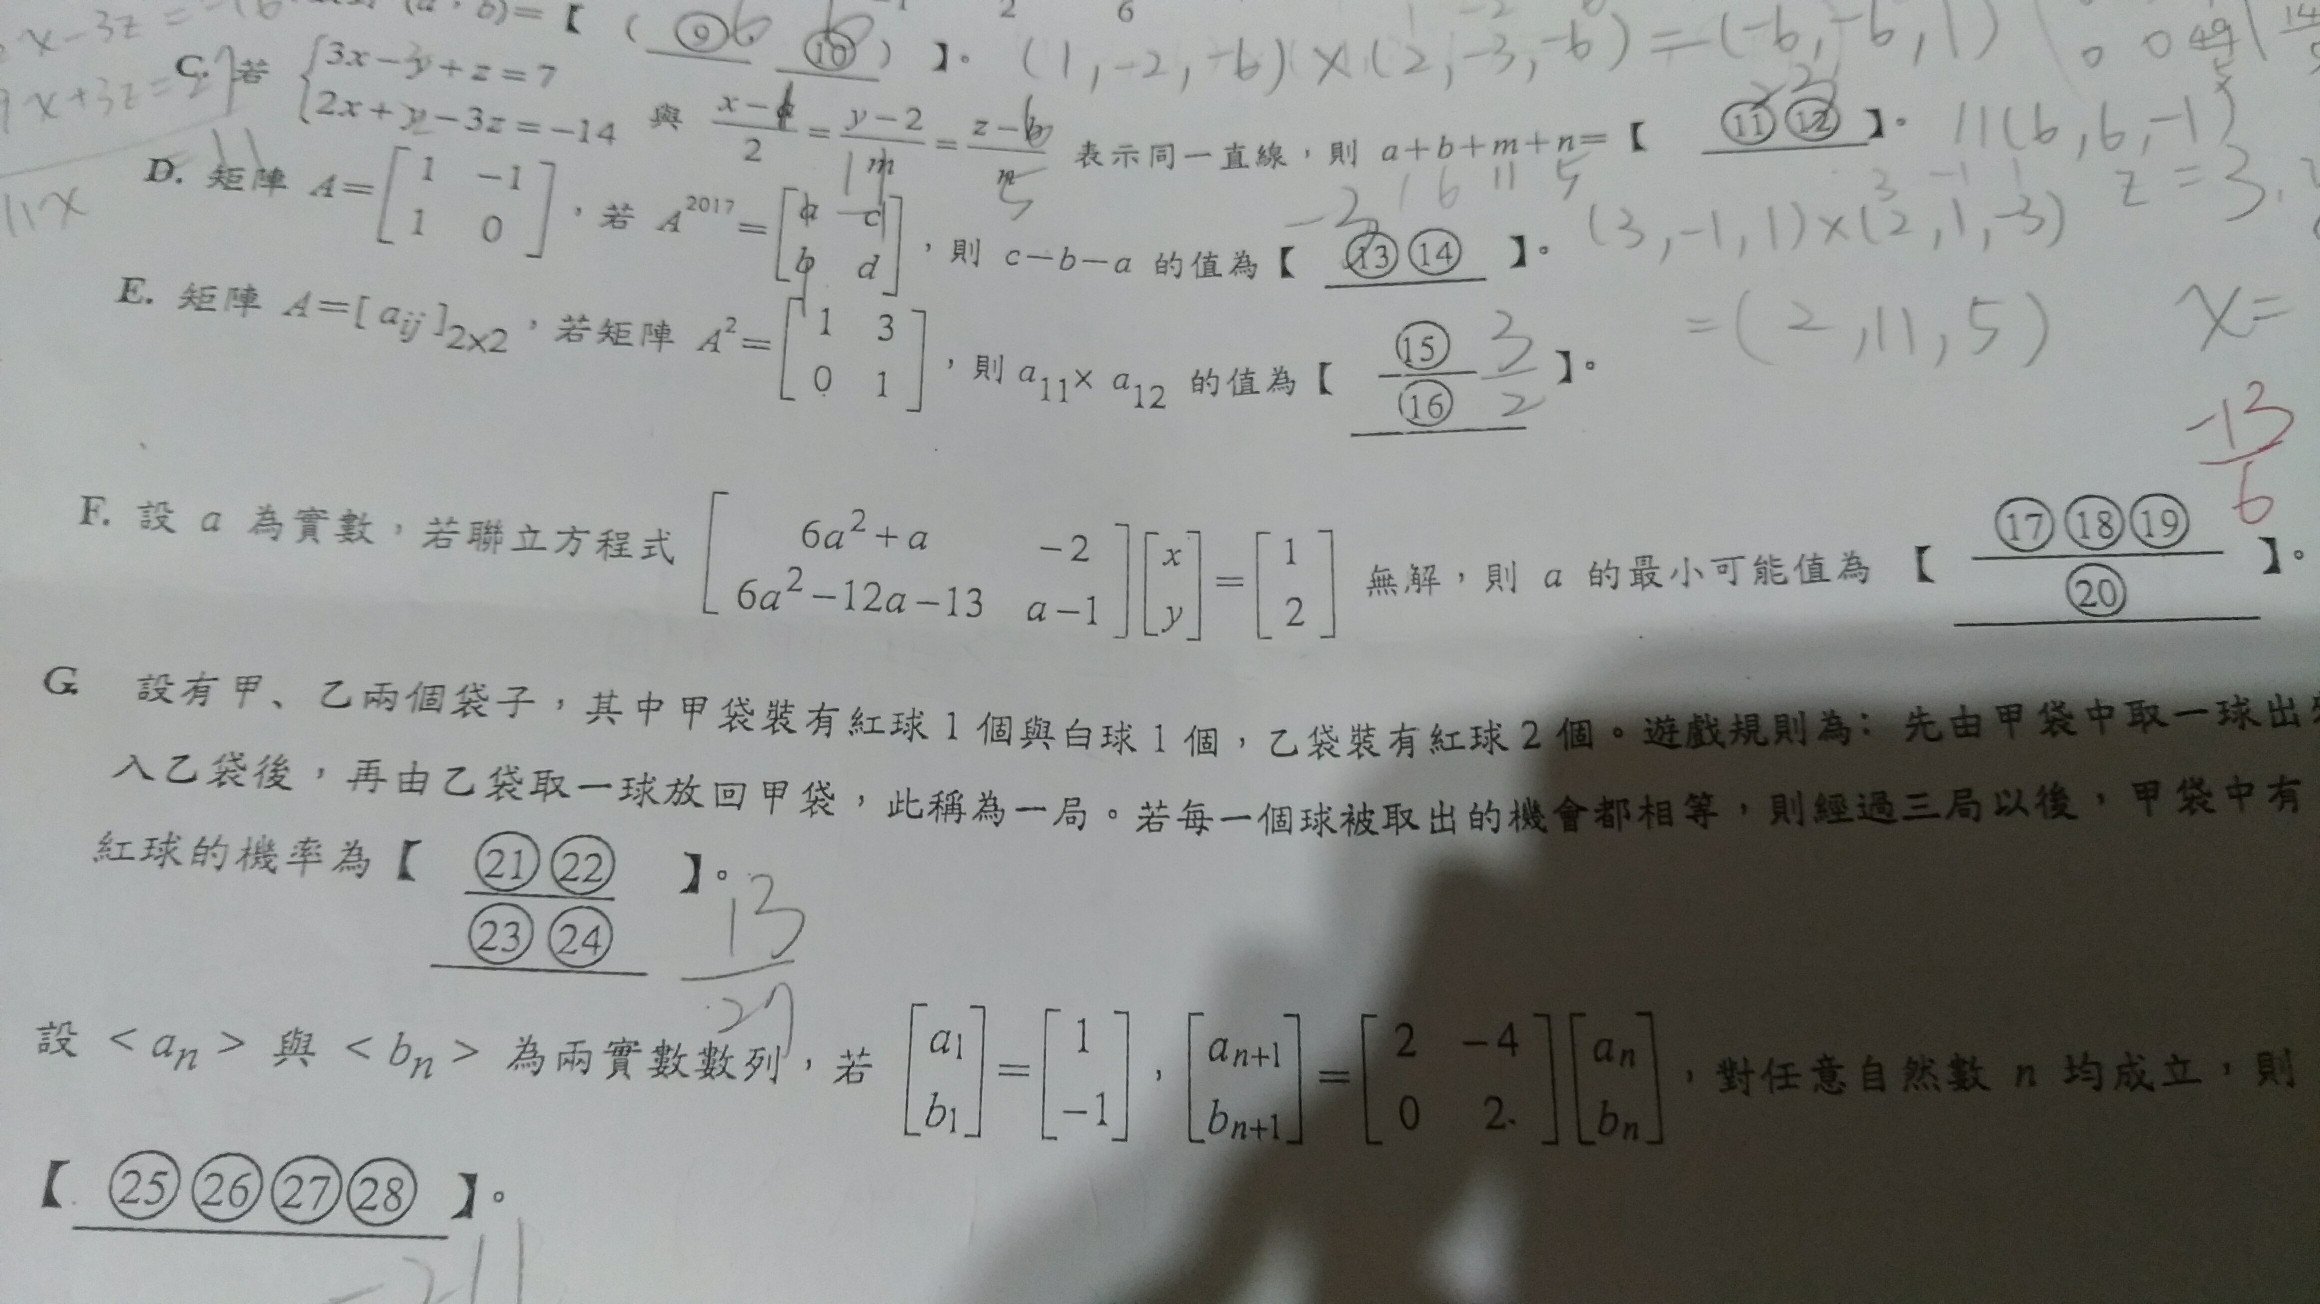 b)=【 ( ⑨ 6 ⑩ 6 ) 】。 (1,-2,-6)×(2,-3,-6)=(-6,-6,1)
C. 若 { 3x-y+z=7
2x+y-3z=-14 與 x-a/2 = y-2/m = z-b/n 表示同一直線,則 a+b+m+n=【 ⑪⑫ 】。 11(6,6,-1)
11x
1 6 11 5
D. 矩陣 A=[1 -1; 1 0],若 A^2017=[a c; b d],則 c-b-a 的值為【 ⑬⑭ -2 】。 (3,-1,1)×(2,1,-3)
=(2,11,5) x=
E. 矩陣 A=[aij]2×2,若矩陣 A^2=[1 3; 0 1],則 a11×a12 的值為【 ⑮/⑯ 3/2 】。
-13/6
F. 設 a 為實數,若聯立方程式 [6a^2+a -2; 6a^2-12a-13 a-1][x; y]=[1; 2] 無解,則 a 的最小可能值為【 ⑰⑱⑲/⑳ 】。
G. 設有甲、乙兩個袋子,其中甲袋裝有紅球 1 個與白球 1 個,乙袋裝有紅球 2 個。遊戲規則為:先由甲袋中取一球出
入乙袋後,再由乙袋取一球放回甲袋,此稱為一局。若每一個球被取出的機會都相等,則經過三局以後,甲袋中有
紅球的機率為【 ㉑㉒/㉓㉔ 】。 13/27
設 <an> 與 <bn> 為兩實數數列,若 [a1; b1]=[1; -1],[an+1; bn+1]=[2 -4; 0 2][an; bn],對任意自然數 n 均成立,則
【 ㉕㉖㉗㉘ 】。